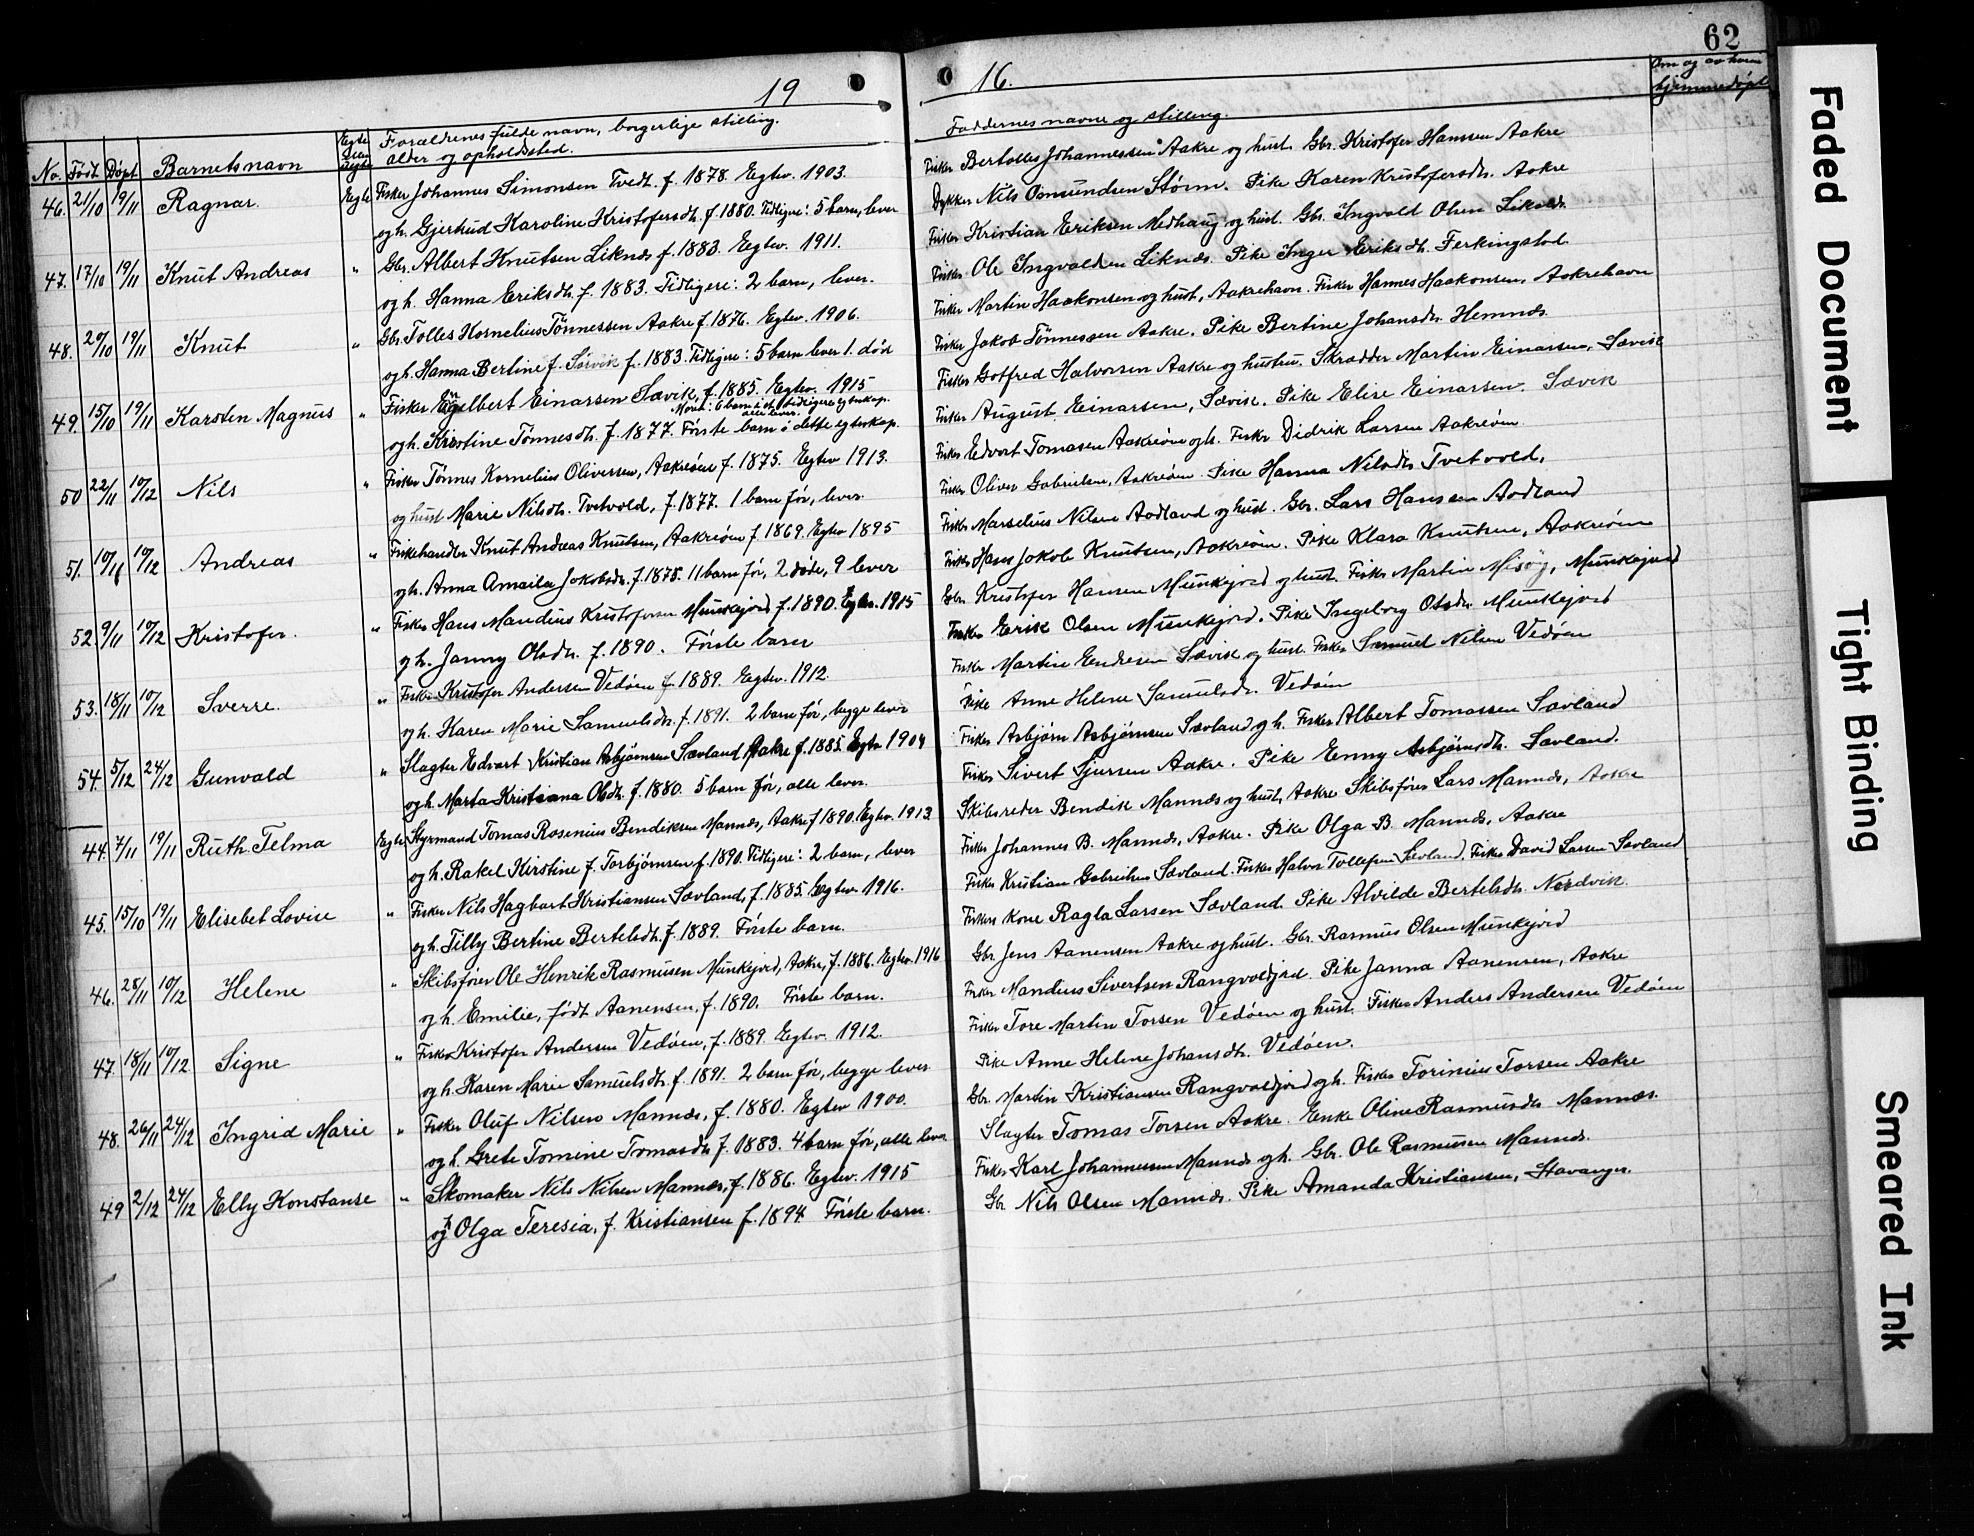 62
19 16.
No. Født Døpt Barnets navn Egte eller uegte Forældrenes fulde navn, borgerlige stilling, alder og opholdssted. Faddernes navne og stilling. Om og av hvem hjemmedøpt
46. 21/10 19/11 Ragnar. Egte Fisker Johannes Simonsen Tvedt. f. 1878. Egtev. 1903. Fisker Bertolles Johannessen Aakre og hust. Gbr. Kristofer Hansen Aakre
og h. Gjertrud Karoline Kristofersdtr. f. 1880. Tidligere: 5 barn, lever Dykker Nils Osmundsen Storm. Pike Karen Kristofersdtr. Aakre
47. 17/10 19/11 Knut Andreas " Gbr. Albert Knutsen Liknes f. 1883. Egtev. 1911. Fisker Kristian Eriksen Medhaug og hust. Gbr. Ingvald Olsen Liknes.
og h. Hanna Eriksdtr. f. 1883. Tidligere: 2 barn, lever. Fisker Ole Ingvaldsen Liknes. Pike Inger Eriksdtr. Ferkingstad
48. 20/10 19/11 Knut " Gbr. Tolles Kornelius Tønnessen Aakre f. 1876. Egtev. 1906. Fisker Martin Haakonsen og hust, Aakrehavn. Fisker Hannes Haakonsen, Aakrehavn
og h. Hanna Bertine f. Sørvik f. 1883. Tidligere: 5 barn lever 1. død Fisker Jakob Tønnessen Aakre. Pike Bertine Johansdtr. Hemnes
49. 15/10 19/11 Karsten Magnus " Fisker Engelbert Einarsen Sævik, f. 1885. Egtev. 1915 Fisker Gotfred Halvorsen Aakre og hustru. Skrædder Martin Einarsen, Sævik
Moren: 6 barn i et tidligere egteskap. alle lever.
og h. Kristine Tønnesdtr. f. 1877. Første barn i dette egteskap. Fisker August Einarsen, Sævik. Pike Elise Einarsen. Sævik
50 22/11 10/12 Nils " Fisker Tønnes Kornelius Oliversen, Aakreøen f. 1875. Egtev 1913. Fisker Edvart Tomasen Aakreøen og h. Fisker Didrik Larsen Aakreøen
og hust Marie Nilsdtr. Tvetvold, f. 1877. 1 barn før, lever. Fisker Oliver Gabrielsen, Aakreøen. Pike Hanna Nilsdtr Tvetvold,
51. 10/11 10/12 Andreas " Fiskehandler Knut Andreas Knutsen, Aakreøen f. 1869. Egtev 1895 Fisker Marselius Nilsen Aadland og hust. Gbr. Lars Hanssen Aadland
og h. Anna Amaila Jakobsdtr. f. 1875. 11 barn før, 2 døde, 9 lever Fisker Hans Jakob Knutsen, Aakreøen. Pike Klara Knutsen, Aakreøen
52 9/11 10/12 Kristofer. " Fisker Hans Mandius Kristofersen Munkejord f. 1890. Egtev. 1915 Gbr. Kristofer Hansen Munkejord og hust. Fisker Martin Misøy, Munkejord
og h. Janny Olsdtr. f. 1890. Første barn Fisker Erik Olsen Munkejord. Pike Ingeborg Olsdtr Munkejord
53. 18/11 10/12 Sverre. " Fisker Kristofer Andersen Vedøen f. 1889. Egtev. 1912. Fisker Martin Endresen Sævik og hust. Fisker Samuel Nilsen Vedøen
og h. Karen Marie Samuelsdtr. f. 1891. 2 barn før, begge lever Pike Anne Helene Samuelsdtr. Vedøen
54. 5/12 24/12 Gunvald " Slagter Edvart Kristian Asbjørnsen Sævland Aakre f. 1885. Egtv 1904 Fisker Asbjørn Asbjørnsen Sævland og h. Fisker Albert Tomassen Sævland
og h. Marta Kristiana Olsdtr. f. 1880. 5 barn før, alle lever. Fisker Sivert Sjursen Aakre. Pike Enny Asbjørnsdtr. Sævland.
44. 7/11 19/11 Ruth Telma Egte Styrmand Tomas Rosenius Bendiksen Mannes, Aakre f 1890. Egtev. 1913 Skibsreder Bendik Mannes og hust, Aakre Skibsfører Lars Mannes, Aakre
og h. Rakel Kirstine f. Torbjørnsen f. 1890. Tidligere: 2 barn, lever Fisker Johannes B. Mannes, Aakre. Pike Olga B. Mannes, Aakre
45. 15/10 19/11 Elisebet Lovise " Fisker Nils Hagbart Kristiansen Sævland, f. 1885. Egtev 1916. Fisker Kristian Gabrielsen Sævland. Fisker Halvor Tollefsen Sævland. Fisker David Larsen Sævland
og h. Tilly Bertine Bertelsdtr. f. 1889. Første barn. Fiskers Kone Ragla Larsen Sævland. Pike Alvilde Bertelsdtr. Nordvik.
46. 25/11 10/12 Helene " Skibsfører Ole Henrik Rasmussen Munkejord, Aakre, f. 1886. Egtev. 1916 Gbr Jens Aanensen Aakre og hust. Gbr. Rasmus Olsen Munkejord
og h. Emilie, født Aanensen, f. 1890. Første barn. Fisker Mandius Sivertsen Rangvaldjord. Pike Janna Aanensen, Aakre
47. 18/11 10/12 Signe " Fisker Kristofer Andersen Vedøen, f. 1889. Egtev. 1912. Fisker Tore Martin Torsen Vedøen og hust. Fisker Anders Andersen Vedøen
og h. Karen Marie Samuelsdtr. f. 1891. 2 barn før, begge lever Pike Anne Helene Johansdtr. Vedøen.
48. 26/11 24/12 Ingrid Marie " Fisker Oluf Nilsen Mannes, f. 1880. Egtev 1900. Gbr. Martin Kristiansen Rangvaldjord og h. Fisker Torinius Torsen Aakre
og h. Grete Tomine Tomasdtr f. 1883. 4 barn før, alle lever. Slagter Tomas Torsen Aakre. Enke Oline Rasmusdtr Mannes.
49 2/12 24/12 Elly Konstanse " Skomaker Nils Nilsen Mannes, f. 1886. Egtev. 1915 Fisker Karl Johannessen Mannes og h. Gbr. Ole Rasmussen Mannes.
og Olga Teresia, f. Kristiansen f. 1894 Første barn. Gbr Nils Olsen Mannes. Pike Amanda Kristiansen, Stavanger.
Faded Document
Tight Binding
Smeared Ink